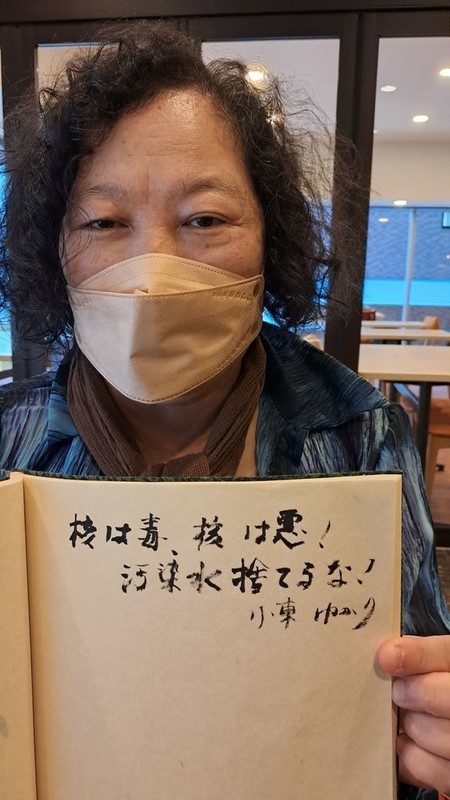 核は毒、核は悪!
汚染水捨てるな!
小東ゆかり